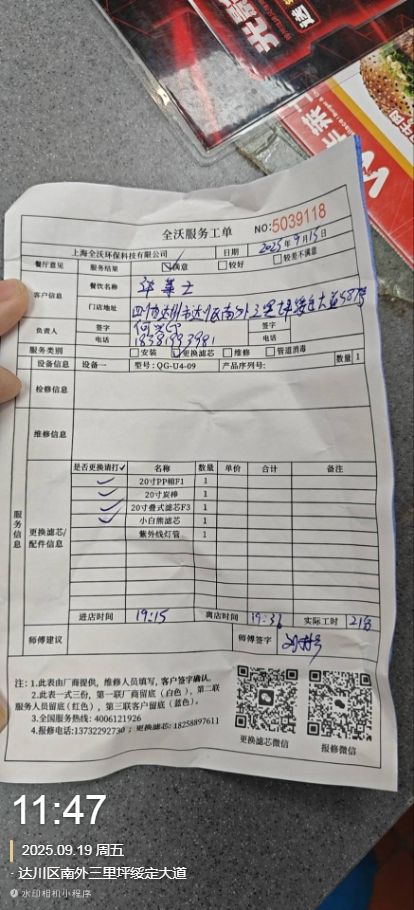 全沃服务工单
NO:5039118
上海全沃环保科技有限公司 日期 2025年9月15日
餐厅意见 服务结果 满意 较好 较差不满意
客户信息 餐饮名称 华莱士
门店地址
负责人 签字 签字
电话 电话
服务类别 安装 更换滤芯 维修 管道消毒
设备信息 设备一 型号:QG-U4-09 产品序列号: 数量 1
检修信息
维修信息
服务信息
更换滤芯/配件信息
是否更换请打✓ 名称 数量 单价 合计 备注
✓ 20寸PP棉F1 1
✓ 20寸炭棒 1
✓ 20寸叠式滤芯F3 1
✓ 小白熊滤芯 1
紫外线灯管 1
进店时间 19:15 离店时间 19:36 实际工时 21分
师傅建议 师傅签字
注:1.此表由厂商提供,维修人员填写,客户签字确认。
2.此表一式三份,第一联厂商留底(白色)、第二联
服务人员留底(红色),第三联客户留底(蓝色)。
3.全国服务热线:4006121926
4.报修电话:13732292730;更换滤芯:18258897611
更换滤芯微信 报修微信
11:47
2025.09.19 周五
·达川区南外三里坪绥定大道
水印相机小程序